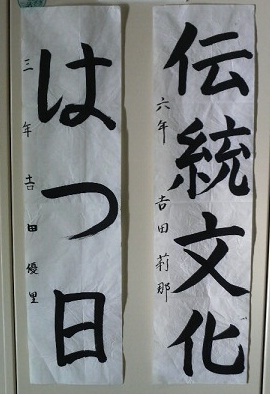 伝統文化
六年 吉田莉那
はつ日
三年 吉田優里